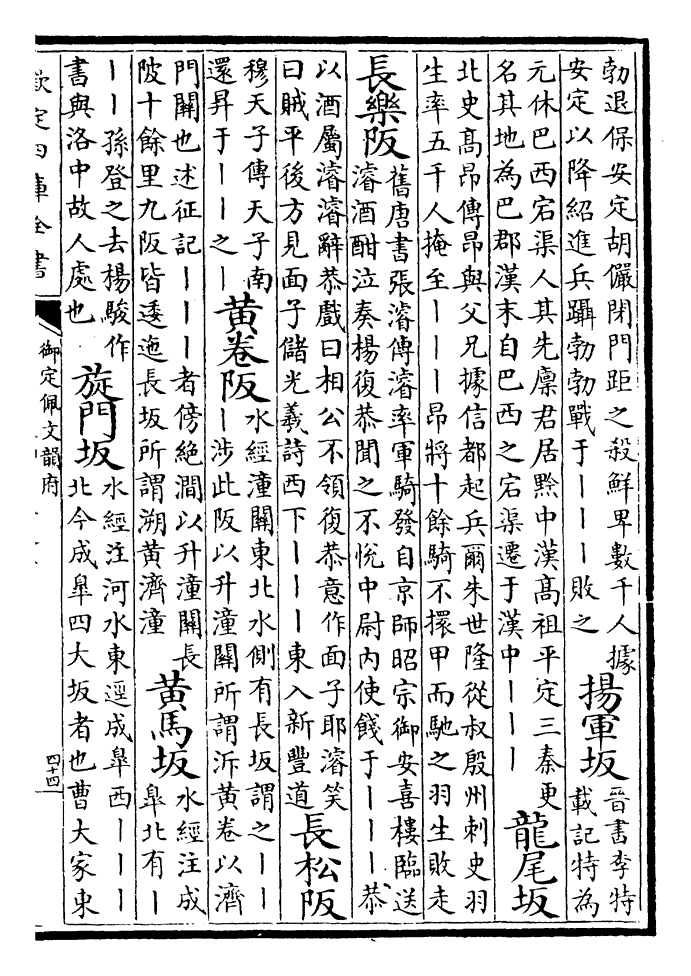 勃退保安定胡儼閉門距之殺鮮卑數千人據
安定以降紹進兵躡勃勃戰于丨丨丨敗之
揚軍坂
晉書李特
載記特為
元休巴西宕渠人其先廩君居黔中漢髙祖平定三秦更
名其地為巴郡漢末自巴西之宕渠遷于漢中丨丨丨
龍尾坂
北史髙昂傳昂與父兄據信都起兵爾朱世隆從叔殷州刺史羽
生率五千人掩至丨丨丨昂將十餘騎不擐甲而馳之羽生敗走
長樂阪
舊唐書張濬傳濬率軍騎發自京師昭宗御安喜樓臨送
濬酒酣泣奏楊復恭聞之不恱中尉内使餞于丨丨丨恭
以酒屬濬濬辭恭戲曰相公不領復恭意作面子耶濬笑
曰賊平後方見面子儲光羲詩西下丨丨丨東入新豐道
長松阪
穆天子傳天子南
還昇于丨丨之丨
黄卷阪
水經潼關東北水側有長坂謂之丨丨
丨涉此阪以升潼關所謂泝黄卷以濟
門關也述征記丨丨丨者傍絶澗以升潼關長
陂十餘里九阪皆逶迤長坂所謂溯黄濟潼
黄馬坂
水經注成
臯北有丨
丨丨孫登之去楊駿作
書與洛中故人處也
旋門坂
水經注河水東逕成臯西丨丨丨
北今成臯四大坂者也曹大家東
欽定四庫全書
御定佩文韻府
四十四